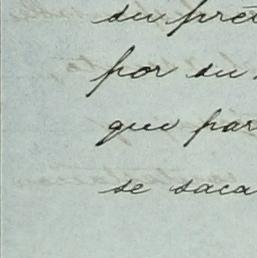 su pré
por su
que par
se saca